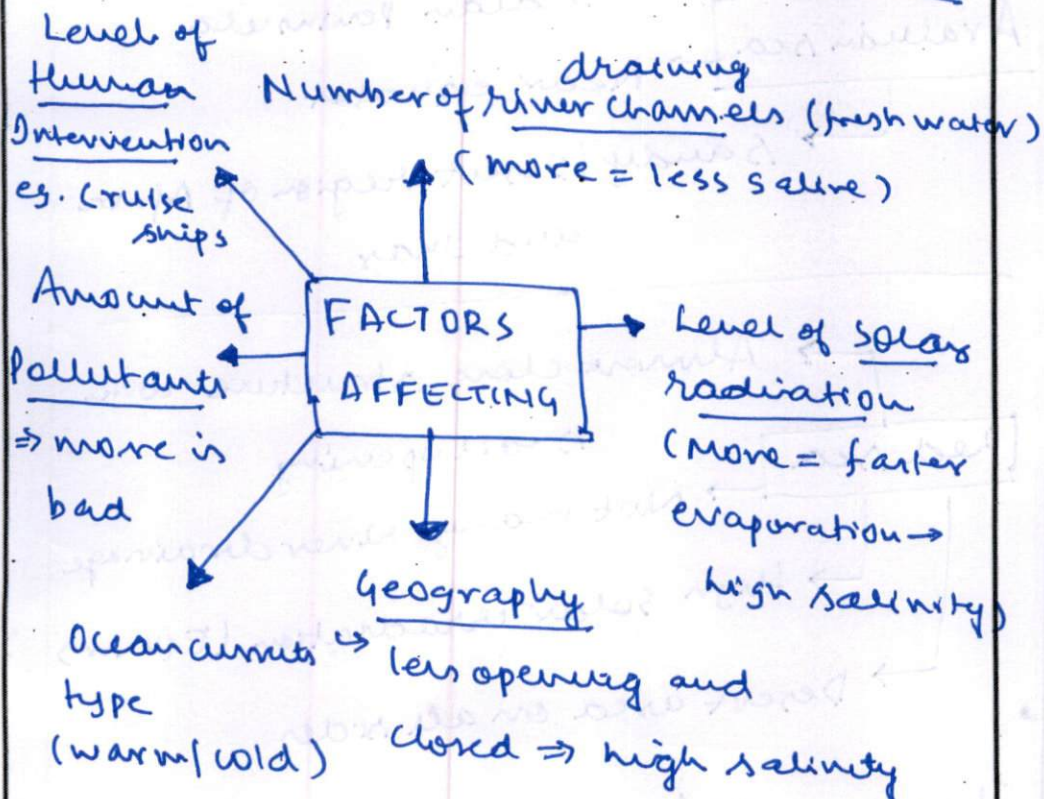 Level of
Human
Intervention
eg. Cruise
ships
draining
Number of river channels (fresh water)
(more = less saline)
Amount of
Pollutants
⇒ more is
bad
FACTORS
AFFECTING
Level of solar
radiation
(More = faster
evaporation →
high salinity)
Ocean currents
type
(warm/cold)
Geography
↳ less opening and
closed ⇒ high salinity